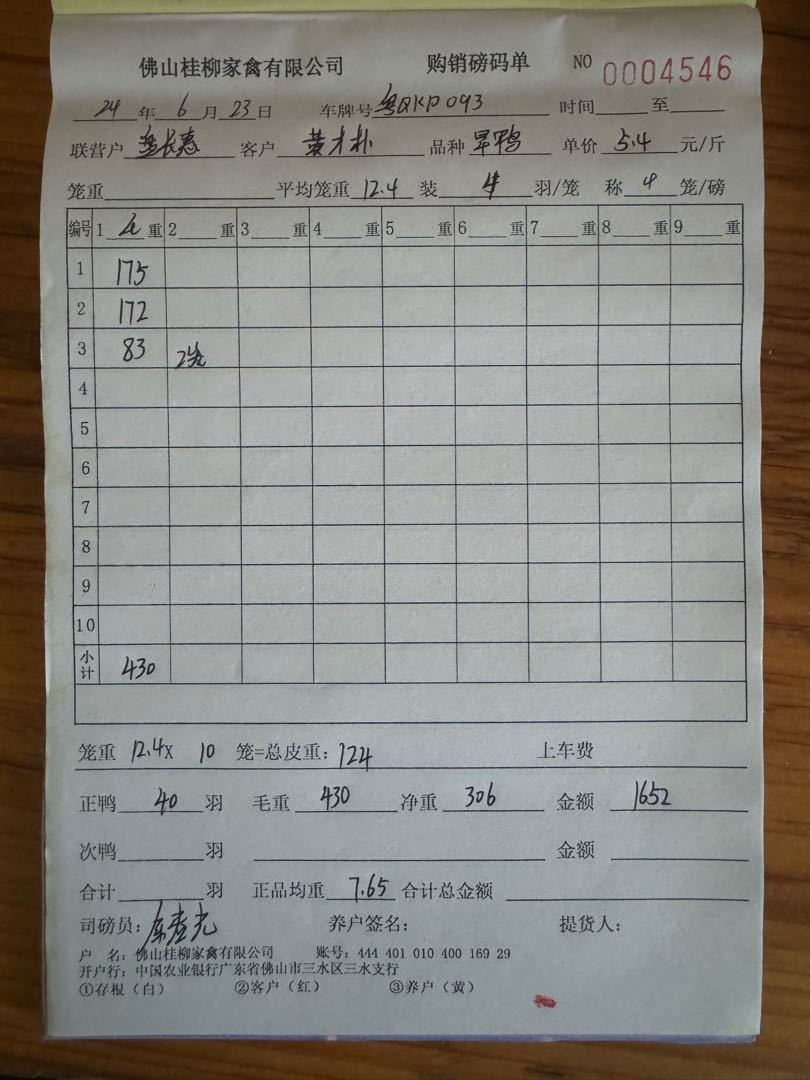 佛山桂柳家禽有限公司 购销磅码单 NO 0004546
24 年 6 月 23 日 车牌号 粤QKP093 时间 至
联营户 客户 黄才朴 品种 旱鸭 单价 5.4 元/斤
笼重 平均笼重 12.4 装 4 羽/笼 称 4 笼/磅
编号 1 重 2 重 3 重 4 重 5 重 6 重 7 重 8 重 9 重
1 175
2 172
3 83 2笼
4
5
6
7
8
9
10
小计 430
笼重 12.4X 10 笼=总皮重: 124 上车费
正鸭 40 羽 毛重 430 净重 306 金额 1652
次鸭 羽 金额
合计 羽 正品均重 7.65 合计总金额
司磅员: 养户签名: 提货人:
户 名: 佛山桂柳家禽有限公司 账号: 444 401 010 400 169 29
开户行: 中国农业银行广东省佛山市三水区三水支行
①存根(白) ②客户(红) ③养户(黄)